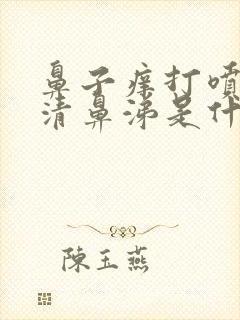 鼻子痒打噴
清鼻涕是什
陳玉燕